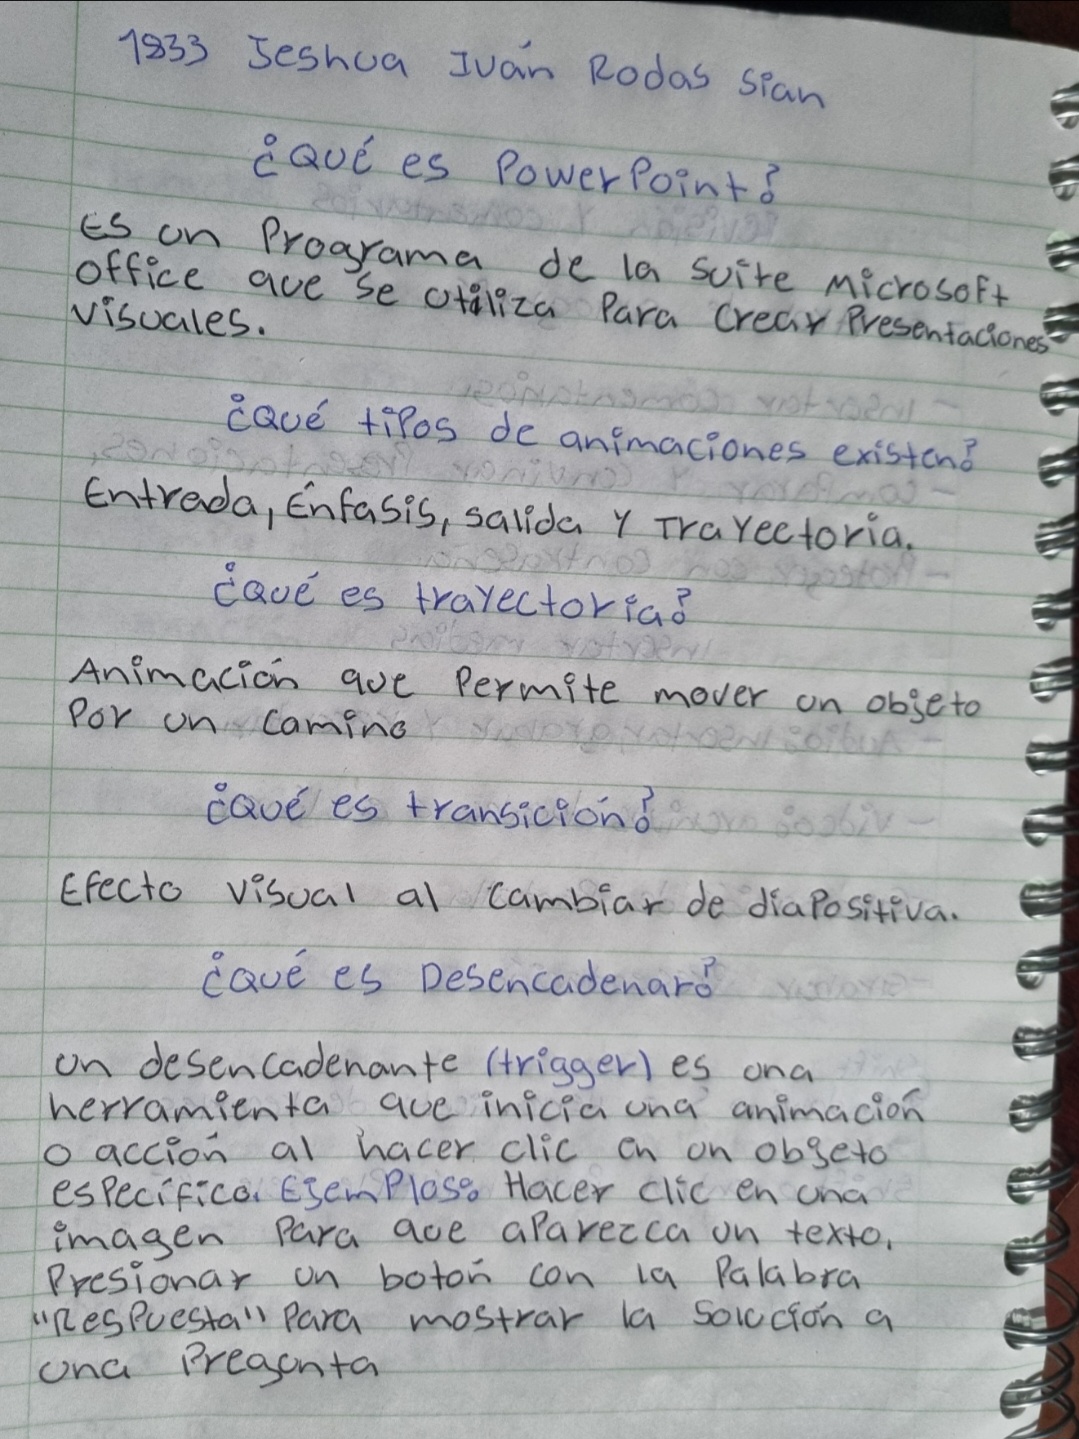 1833 Jeshua Iván Rodas Sian
¿Qué es PowerPoint?
Es un Programa de la suite Microsoft
office que se utiliza Para Crear Presentaciones
visuales.
¿Qué tipos de animaciones existen?
Entrada, Énfasis, salida y Trayectoria.
¿Qué es trayectoria?
Animación que Permite mover un objeto
Por un camino
¿Qué es transición?
Efecto visual al cambiar de diapositiva.
¿Qué es Desencadenar?
un desencadenante (trigger) es una
herramienta que inicia una animación
o acción al hacer clic en un objeto
específico. Ejemplos: Hacer clic en una
imagen Para que aparezca un texto.
Presionar un botón con la Palabra
"Respuesta" Para mostrar la solución a
una Pregunta